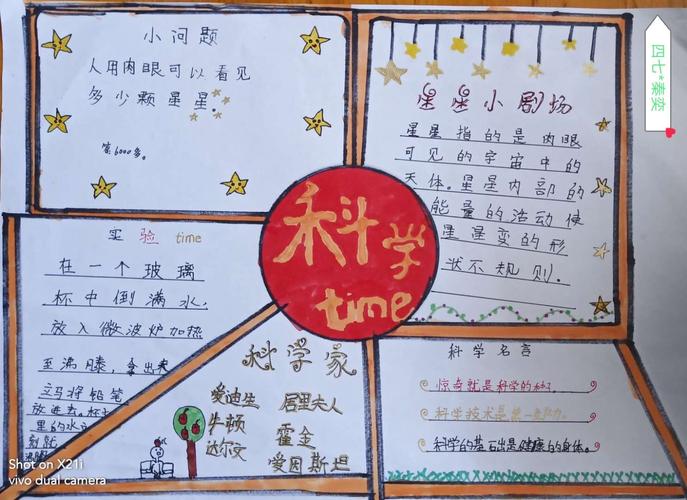 小问题
人用肉眼可以看见
多少颗星星。
答6000多。
星星小剧场
星星指的是肉眼
可见的宇宙中的
天体。星星内部的
能量的活动使
星星变的形
状不规则。
四七*秦奕
科学
time
实验time
在一个玻璃
杯中倒满水,
放入微波炉加热
至沸腾,拿出来
立马将铅笔
放进去。杯
里的水
刻就
科学家
爱迪生 居里夫人
牛顿 霍金
达尔文 爱因斯坦
科学名言
惊奇就是科学的种子。
科学技术是第一生产力。
科学的基础是健康的身体。
Shot on X21i
vivo dual camera